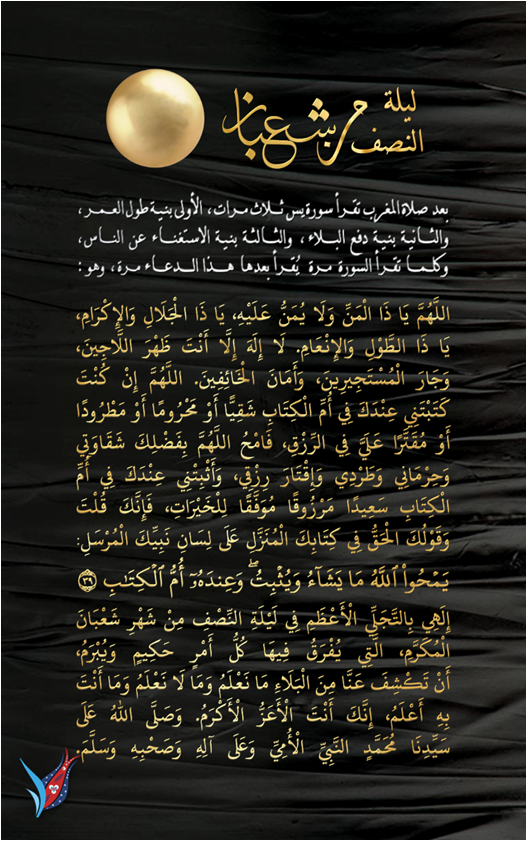 ليلة
النصف من شعبان
بعد صلاة المغرب تقرأ سورة يس ثلاث مرات، الأولى بنية طول العمر،
والثانية بنية دفع البلاء، والثالثة بنية الاستغناء عن الناس،
وكلما تقرأ السورة مرة يُقرأ بعدها هذا الدعاء مرة، وهو:
اللَّهُمَّ يَا ذَا الْمَنِّ وَلَا يُمَنُّ عَلَيْهِ، يَا ذَا الْجَلَالِ وَالإِكْرَامِ،
يَا ذَا الطَّوْلِ وَالإِنْعَامِ. لَا إِلَهَ إِلَّا أَنْتَ ظَهْرَ اللَّاجِينَ،
وَجَارَ الْمُسْتَجِيرِينَ، وَأَمَانَ الْخَائِفِينَ. اللَّهُمَّ إِنْ كُنْتَ
كَتَبْتَنِي عِنْدَكَ فِي أُمِّ الْكِتَابِ شَقِيًّا أَوْ مَحْرُومًا أَوْ مَطْرُودًا
أَوْ مُقَتَّرًا عَلَيَّ فِي الرِّزْقِ، فَامْحُ اللَّهُمَّ بِفَضْلِكَ شَقَاوَتِي
وَحِرْمَانِي وَطَرْدِي وَإِقْتَارَ رِزْقِي، وَأَثْبِتْنِي عِنْدَكَ فِي أُمِّ
الْكِتَابِ سَعِيدًا مَرْزُوقًا مُوَفَّقًا لِلْخَيْرَاتِ، فَإِنَّكَ قُلْتَ
وَقَوْلُكَ الْحَقُّ فِي كِتَابِكَ الْمُنَزَّلِ عَلَى لِسَانِ نَبِيِّكَ الْمُرْسَلِ:
يَمْحُوا۟ ٱللَّهُ مَا يَشَآءُ وَيُثْبِتُ ۖ وَعِندَهُۥٓ أُمُّ ٱلْكِتَٰبِ ۝٣٩
إِلَهِي بِالتَّجَلِّي الْأَعْظَمِ فِي لَيْلَةِ النِّصْفِ مِنْ شَهْرِ شَعْبَانَ
الْمُكَرَّمِ، الَّتِي يُفْرَقُ فِيهَا كُلُّ أَمْرٍ حَكِيمٍ وَيُبْرَمُ،
أَنْ تَكْشِفَ عَنَّا مِنَ الْبَلَاءِ مَا نَعْلَمُ وَمَا لَا نَعْلَمُ وَمَا أَنْتَ
بِهِ أَعْلَمُ، إِنَّكَ أَنْتَ الْأَعَزُّ الْأَكْرَمُ. وَصَلَّى اللهُ عَلَى
سَيِّدِنَا مُحَمَّدٍ النَّبِيِّ الْأُمِيِّ وَعَلَى آلِهِ وَصَحْبِهِ وَسَلَّمَ.